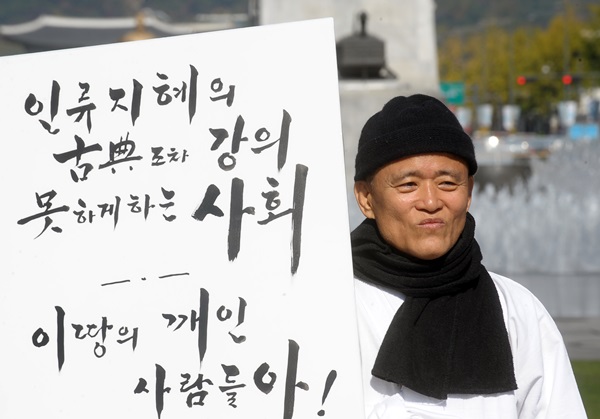 인류지혜의
古典조차 강의
못하게하는 사회
이땅의 깨인
사람들아!